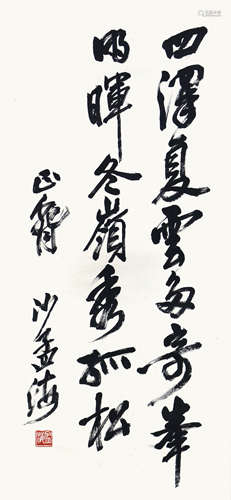 四澤夏雲多奇峯
明暉冬嶺秀孤松
沙孟海